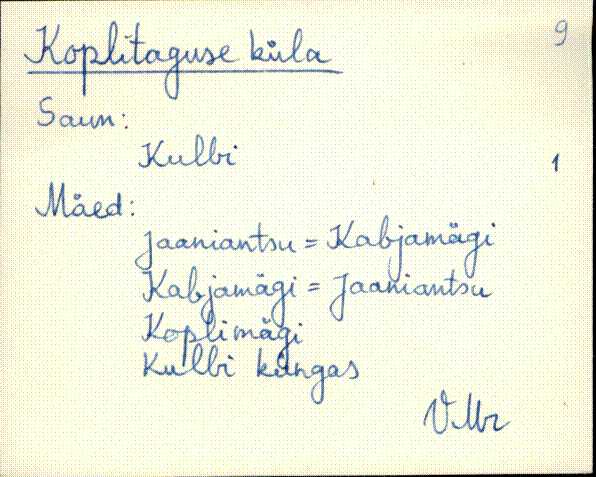 9
Koplitaguse küla
Saun:
Kulbi
1
Mäed:
Jaaniantsu = Kabjamägi
Kabjamägi = Jaaniantsu
Koplimägi
Kulbi küngas